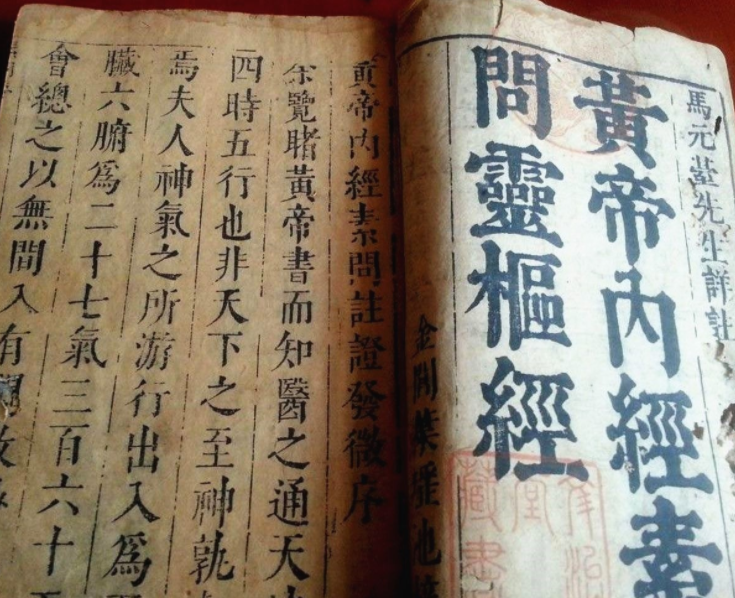 馬元臺先生詳註
黃帝內經素
問靈樞經
藏書
黃帝內經素問註證發微序
余覽睹黃帝書而知醫之通天
四時五行也非天下之至神孰
焉夫人神氣之所游行出入為
臟六腑為二十七氣三百六十
會總之以無間入有間故